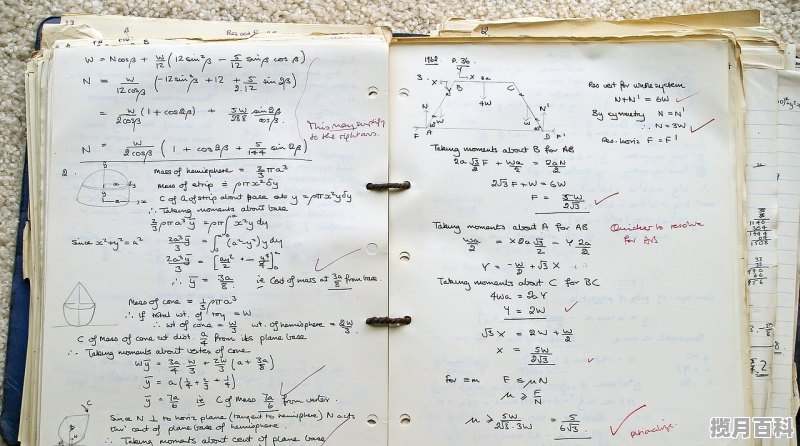 33
W = Ncosβ + W/12 (12 sin²β - 5/12 sinβ cosβ)
N = W/12cosβ (-12sin²β + 12 + 5/2.12 sin 2β)
= W/2cosβ (1 + cos2β) + 5W/288 sin2β/cosβ.
This may simplify
to the right ans.
N = W/2cosβ (1 + cos2β + 5/144 sin2β)
2.
Mass of hemisphere = 2/3 πa³
Mass of strip = ρπx²δy
C of G of strip about base as y = ρπx²yδy
∴ Taking moments about base
2/3 ρπa³ȳ = ∫ρπx²y dy
Since x²+y² = a²
2a³ȳ/3 = ∫(a²-y²)y dy
2a³ȳ/3 = [ay²/2 - y⁴/4]
∴ ȳ = 3a/8 ie Cent of mass at 3a/8 from base.
Mass of cone = 1/3 ρπa³
∴ If total wt. of toy = W
∴ wt of cone = W/3 wt. of hemisphere = 2W/3
C of Mass of cone at dist. a/4 from its plane base
∴ Taking moments about vertex of cone
Wȳ = 3a/4 W/3 + 2W/3 (a + 3a/8)
ȳ = 7a/6 ie C of mass 7a/6 from vertex.
Since N ⊥ to horiz plane (tangent to hemisphere) N acts
thro' cent of plane base of hemisphere.
∴ Taking moments about cent of plane base
1968 P. 36
3.
B C
4W
N N'
W W
F A D F'
Res vert for whole system
N+N' = 6W
By symmetry N = N'
∴ N = 3W
Res. horiz F = F'
Taking moments about B for AB
2a √3/2 F + Wa/2 = 2aN/2
2√3F + W = 6W
F = 5W/2√3
Taking moments about A for AB
Quicker to resolve
for AB
Wa/2 = X2a√3/2 - Y 2a/2
Y = -W/2 + √3 X
Taking moments about C for BC
4Wa = 2aY
Y = 2W
√3X = 2W + W/2
X = 5W/2√3
for =m F ≤ μN
μ ≥ F/N
μ ≥ 5W/2√3.3W = 5/6√3
rationalize.
揽月百科